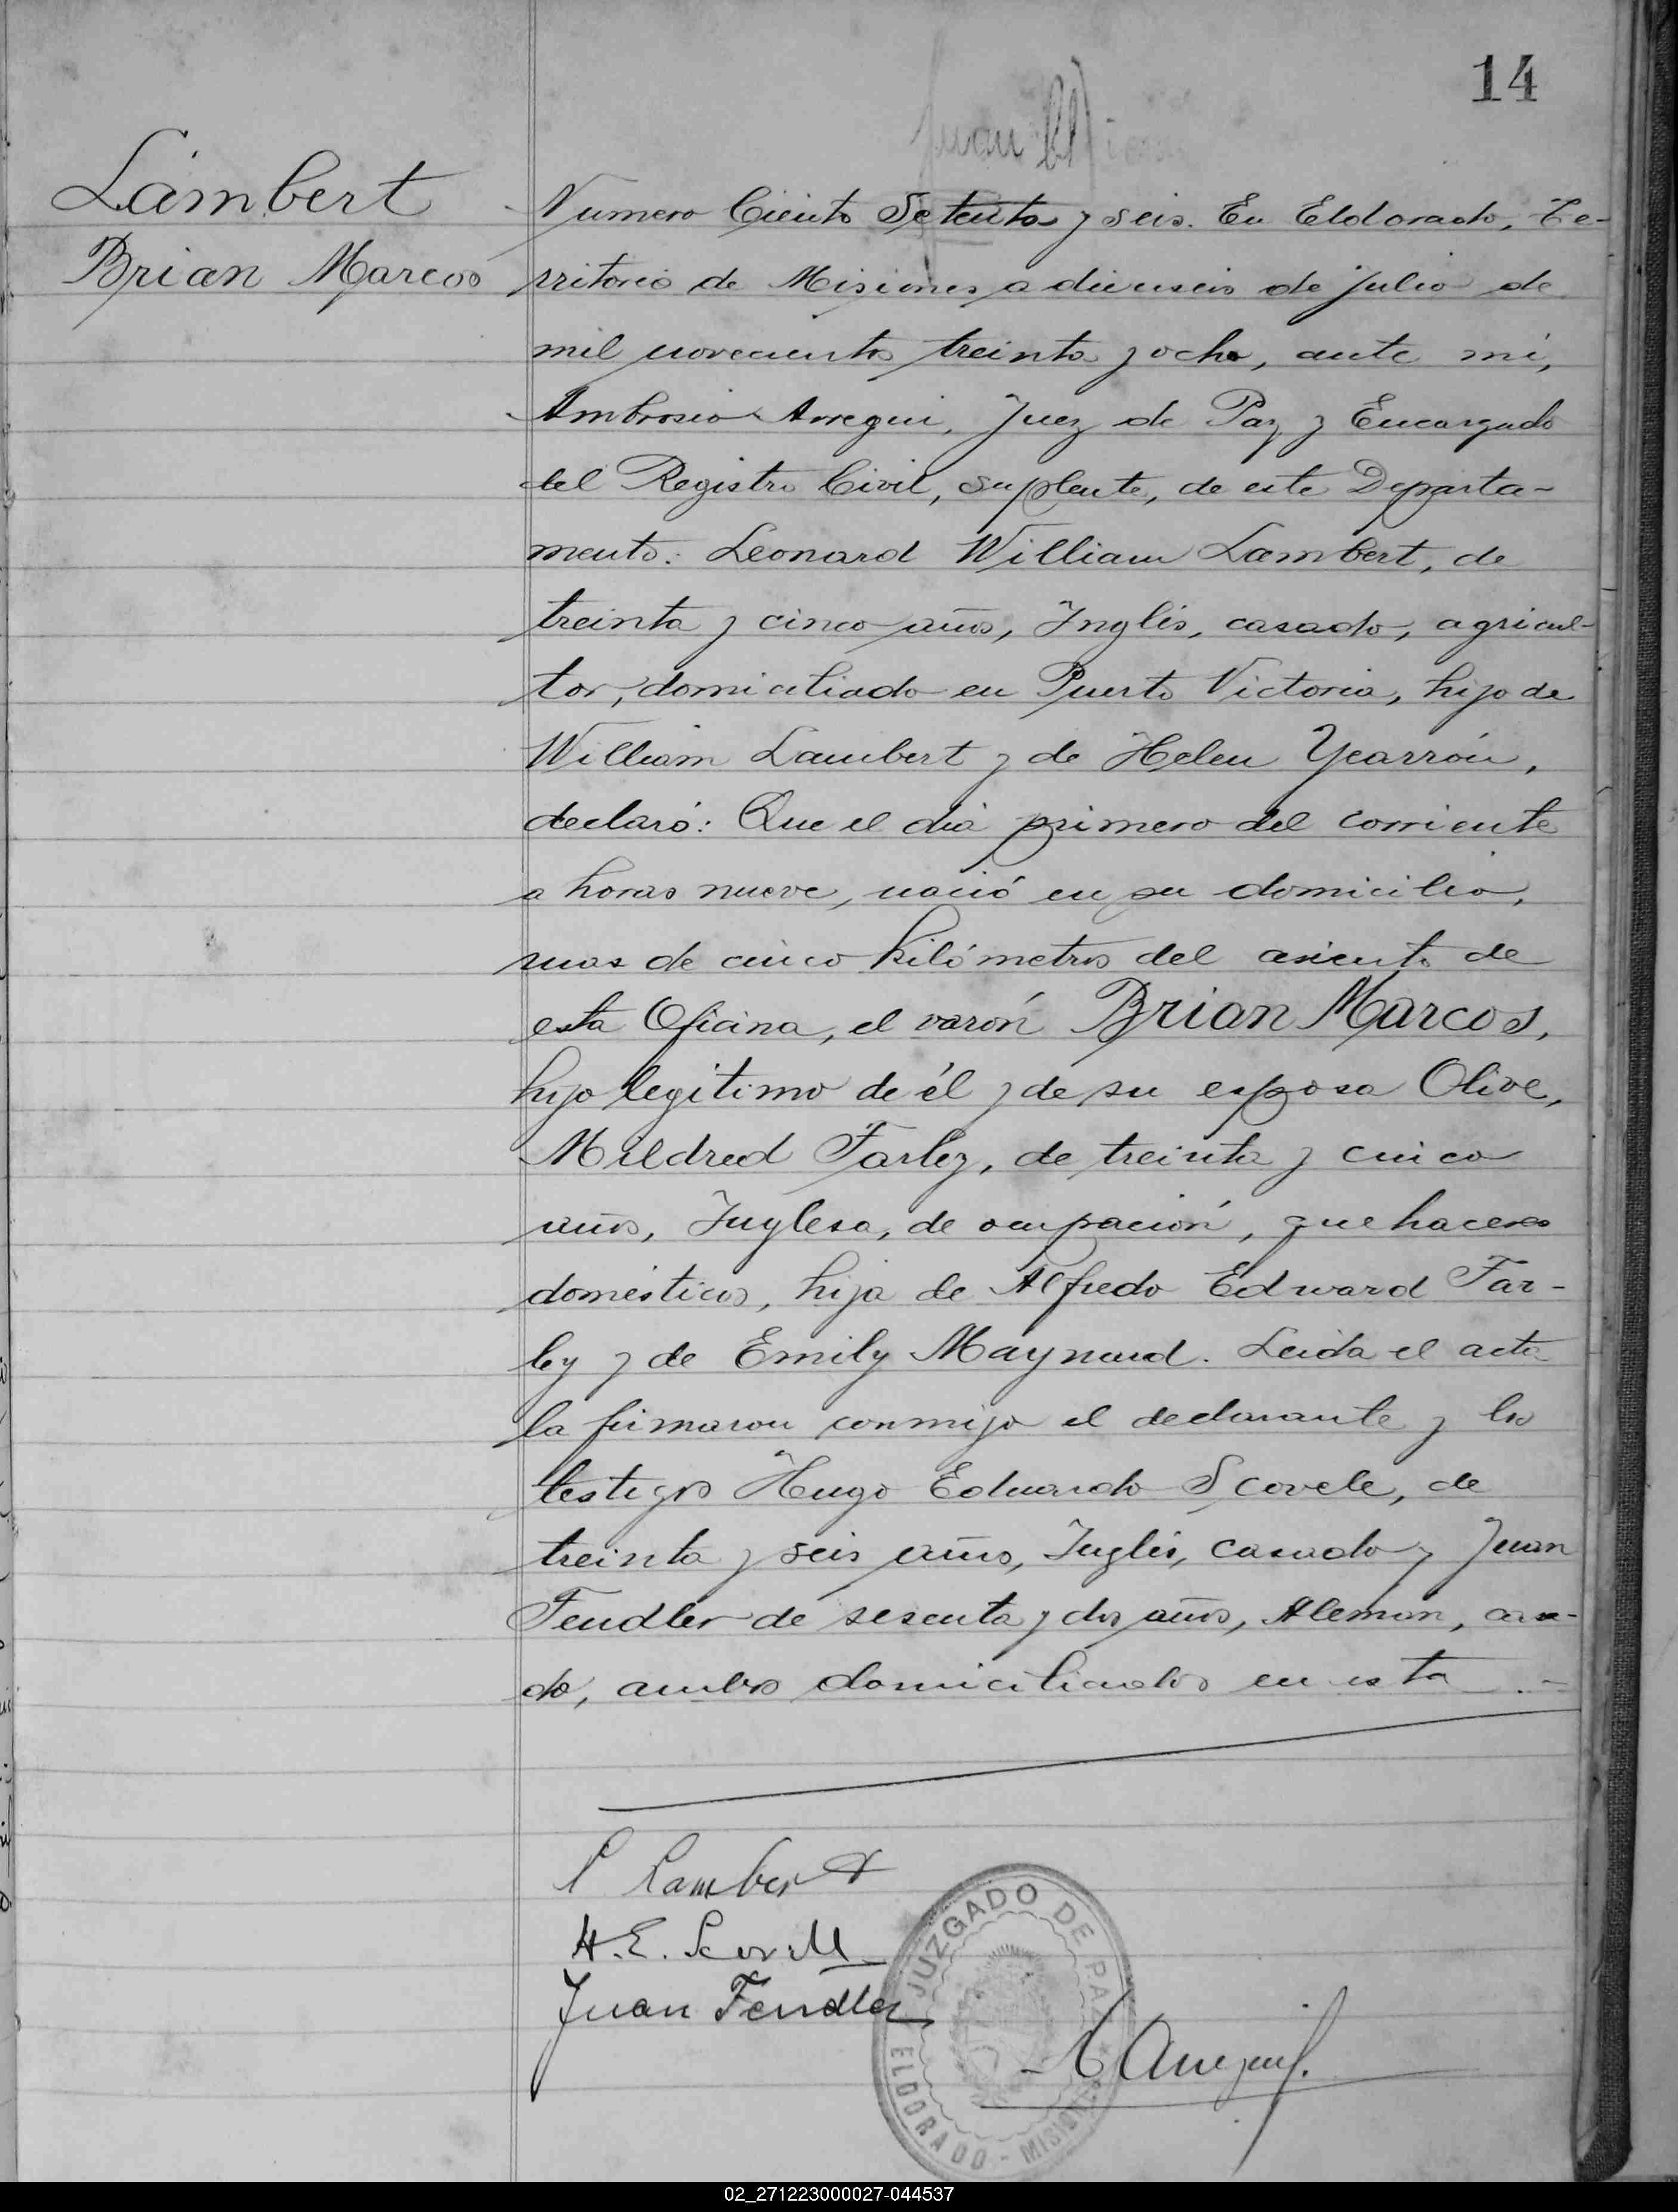 14
Juan
Lambert
Brian Marcos
Numero Ciento Setenta y seis. En Eldorado, Te-
rritorio de Misiones a dieciseis de julio de
mil novecientos treinta y ocho, ante mi,
Ambrosio Arregui, Juez de Paz y Encargado
del Registro Civil, suplente, de este Departa-
mento: Leonard William Lambert, de
treinta y cinco años, Inglés, casado, agricul-
tor, domiciliado en Puerto Victoria, hijo de
William Lambert y de Helen Yearrón,
declaró: Que el dia primero del corriente
a horas nueve, nació en su domicilio,
mas de cinco kilómetros del asiento de
esta Oficina, el varón Brian Marcos,
hijo legitimo de él y de su esposa Olive,
Mildred Farley, de treinta y cinco
años, Inglesa, de ocupación, quehaceres
domésticos, hija de Alfredo Edward Far-
ley y de Emily Maynard. Leida el acta
la firmaron conmigo el declarante y los
testigos Hugo Eduardo Scovele, de
treinta y seis años, Inglés, casado y Juan
Fendler de sesenta y dos años, Aleman, casa-
do, ambos domiciliados en esta
L Lambert
H. E. Scovell
Juan Fendler
A Arregui
JUZGADO DE PAZ
ELDORADO - MISIONES
02_271223000027-044537